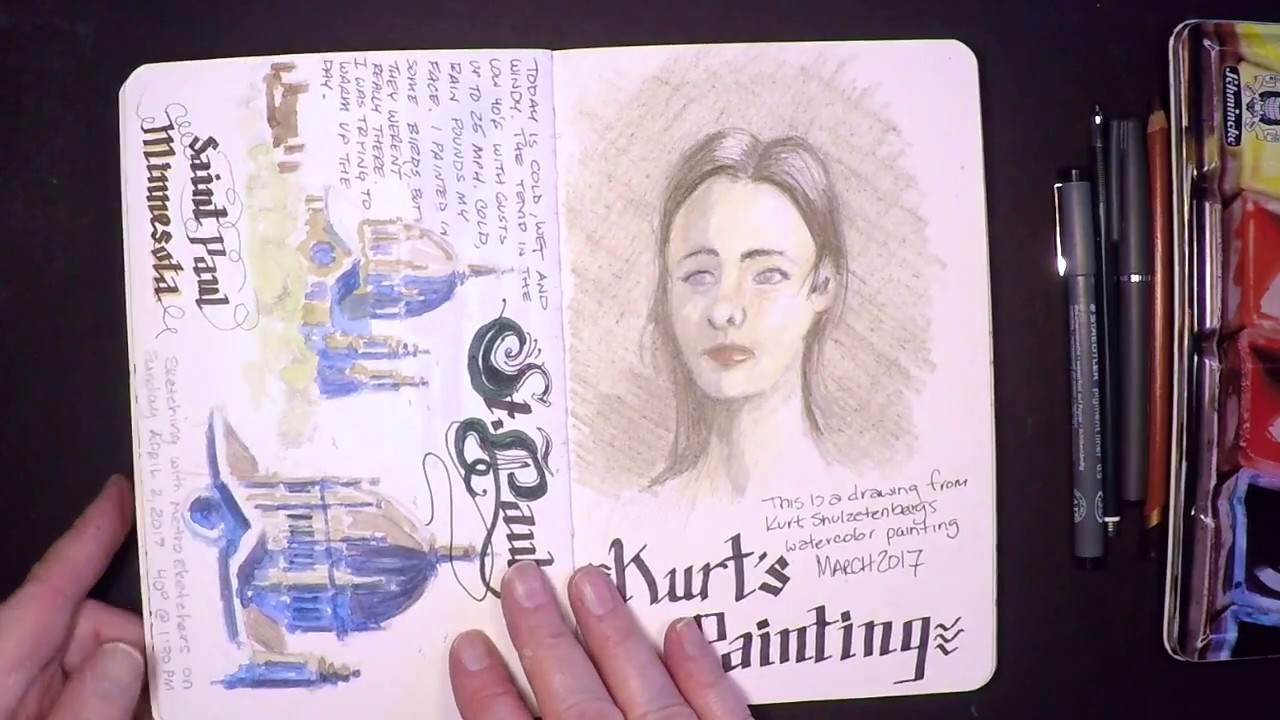 TODAY IS COLD, WET AND
WINDY. THE TEMP IN THE
LOW 40'S WITH GUSTS
UP TO 25 MPH. COLD,
RAIN POUNDS MY
FACE. I PAINTED IN
SOME BIRDS BUT
THEY WERENT
REALLY THERE.
I WAS TRYING TO
WARM UP THE
DAY.
St. Paul
Saint Paul
Minnesota
Sketching with MetroSketchers on
Sunday APRIL 2, 2017 40° @ 1:30 PM
This is a drawing from
Kurt Shulzetenbergs
watercolor painting
MARCH 2017
Kurt's
Painting
Schmincke
STAEDTLER pigment liner 0.5